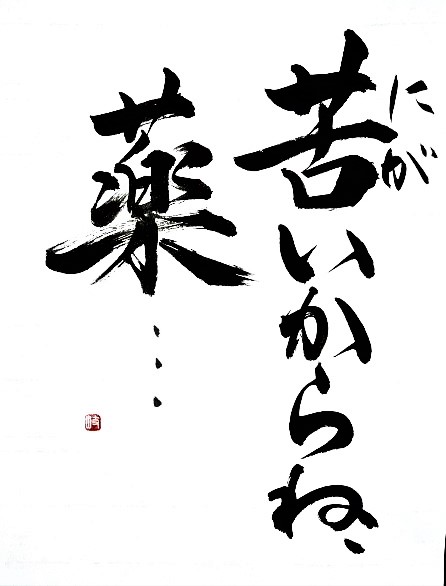 苦いからね、
にが
薬…